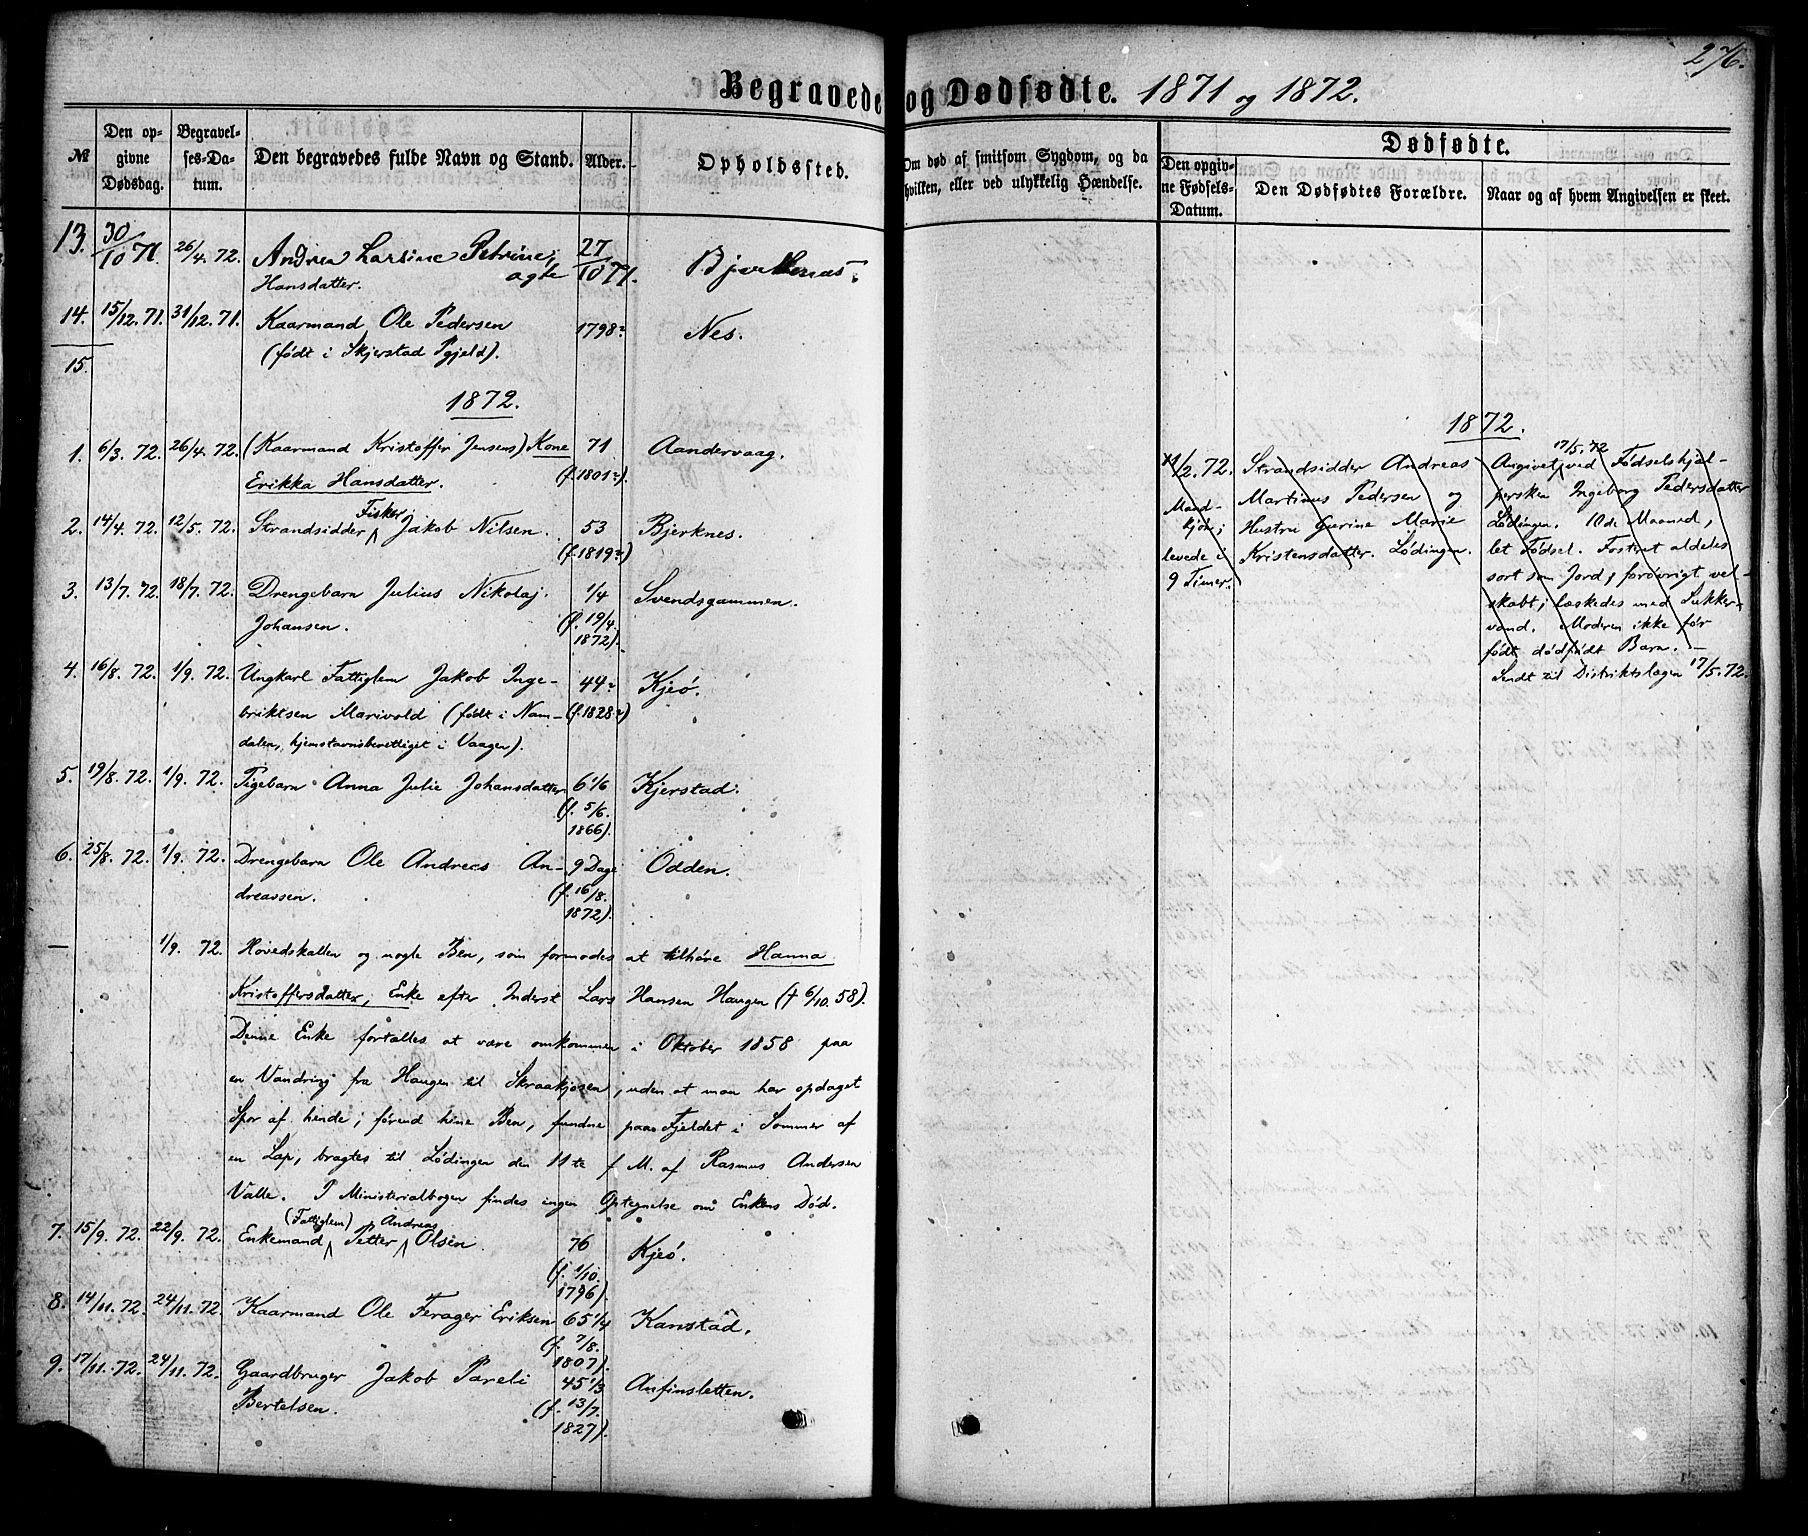 276.
Begravede og Dødfødte. 1871 og 1872.
№
Den opgivne Dødsdag.
Begravelses-Datum.
Den begravedes fulde Navn og Stand.
Alder.
Opholdssted.
Om død af smitsom Sygdom, og da hvilken, eller ved ulykkelig Hændelse.
Dødfødte.
Den opgivne Fødsels-Datum.
Den Dødfødtes Forældre.
Naar og af hvem Angivelsen er skeet.
13. 30/10 71. 26/4. 72. Andrea Larsine Petrine, 27/10 71. Bjerknes.
Hansdatter. ægte
14. 15/12. 71. 31/12. 71. Kaarmand Ole Pedersen 1798? Nes.
(født i Skjerstad Pgjeld).
15.
1872.
1. 6/3. 72. 26/4. 72. (Kaarmand Kristoffer Jensens) Kone 71 Aandervaag.
Erikka Hansdatter. (f. 1801?)
2. 14/4. 72. 12/5. 72. Strandsidder Fisker Jakob Nilsen. 53 Bjerknes.
(f. 1819?)
3. 13/7. 72. 18/7. 72. Drengebarn Julius Nikolaj 1/4 Svendsgammen.
Johansen. (f. 19/4. 1872).
4. 16/8. 72. 1/9. 72. Ungkarl Fattiglem Jakob Inge- 44? Kjeø.
briktsen Marivold (født i Nam- (f. 1828?)
dalen, hjemstavnsberettiget i Vaagen).
5. 19/8. 72. 1/9. 72. Pigebarn Anna Julie Johansdatter 6 1/6 Kjerstad.
(f. 5/6. 1866).
6. 25/8. 72. 1/9. 72. Drengebarn Ole Andreas An- 9 Dage Odden.
dreassen. (f. 16/8. 1872).
— 1/9. 72. Hovedskallen og nogle Ben, som formodes at tilhøre Hanna
Kristoffersdatter, Enke efter Inderst Lars Hansen Haugen († 6/10. 58).
Denne Enke fortaltes at være omkommen i Oktober 1858 paa
en Vandring fra Haugen til Skraakjosen, uden at man har opdaget
Spor af hende; førend hine Ben, fundne paa Fjeldet i Sommer af
en Lap, bragtes til Lødingen den 11te f. M. af Rasmus Andersen
Valle. I Ministerialbogen findes ingen Optegnelse om Enkens Død.
7. 15/9. 72. 22/9. 72. Enkemand (Fattiglem) Petter Andreas Olsen. 76 Kjeø.
(f. 1/10. 1796).
8. 14/11. 72. 24/11. 72. Kaarmand Ole Ferager Eriksen 65 1/4 Kanstad.
(f. 7/8. 1807).
9. 17/11. 72. 24/11. 72. Gaardbruger Jakob Pareli 45 1/3 Anfinsletten.
Bertelsen. (f. 13/7. 1827).
1872.
11/2. 72.
Mand-
kjøn;
levede i
9 Timer.
Strandsidder Andreas
Martinus Pedersen og
Hustru Gurine Marie
Kristensdatter. Lødingen.
17/5. 72
Angivet ved Fødselshjæl-
persken Ingeborg Pedersdatter
Lødingen. 10de Maaned,
let Fødsel. Fostret aldeles
sort som Jord, forøvrigt vel-
skabt; læskedes med Sukker-
vand. Moderen ikke før
født dødfødt Barn. —
Sendt til Distriktslægen 17/5. 72.